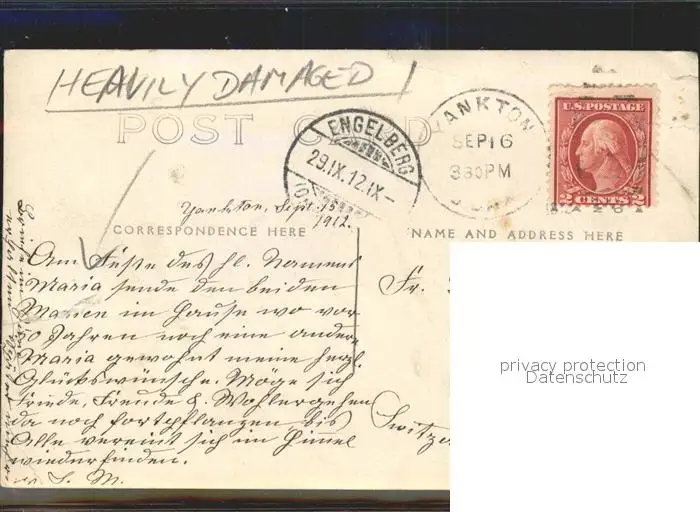 HEAVILY DAMAGED !
POST CARD
ENGELBERG
29.IX.12.IX-
YANKTON
SEP 16
330PM
U.S. POSTAGE
2 CENTS 2
Yankton, Sept. 15
1912.
CORRESPONDENCE HERE
NAME AND ADDRESS HERE
Am Feste des hl. Namens
Maria sende den beiden
Marien im Hause wo vor
Jahren noch eine andere
Maria gewohnt meine herzl.
Glückswünsche. Möge sich
Friede, Freude & Wohlergehen
da noch fortpflanzen bis
Alle vereint sich im Himel
wiederfinden.
S. M.
Fr.
Switze
privacy protection
Datenschutz